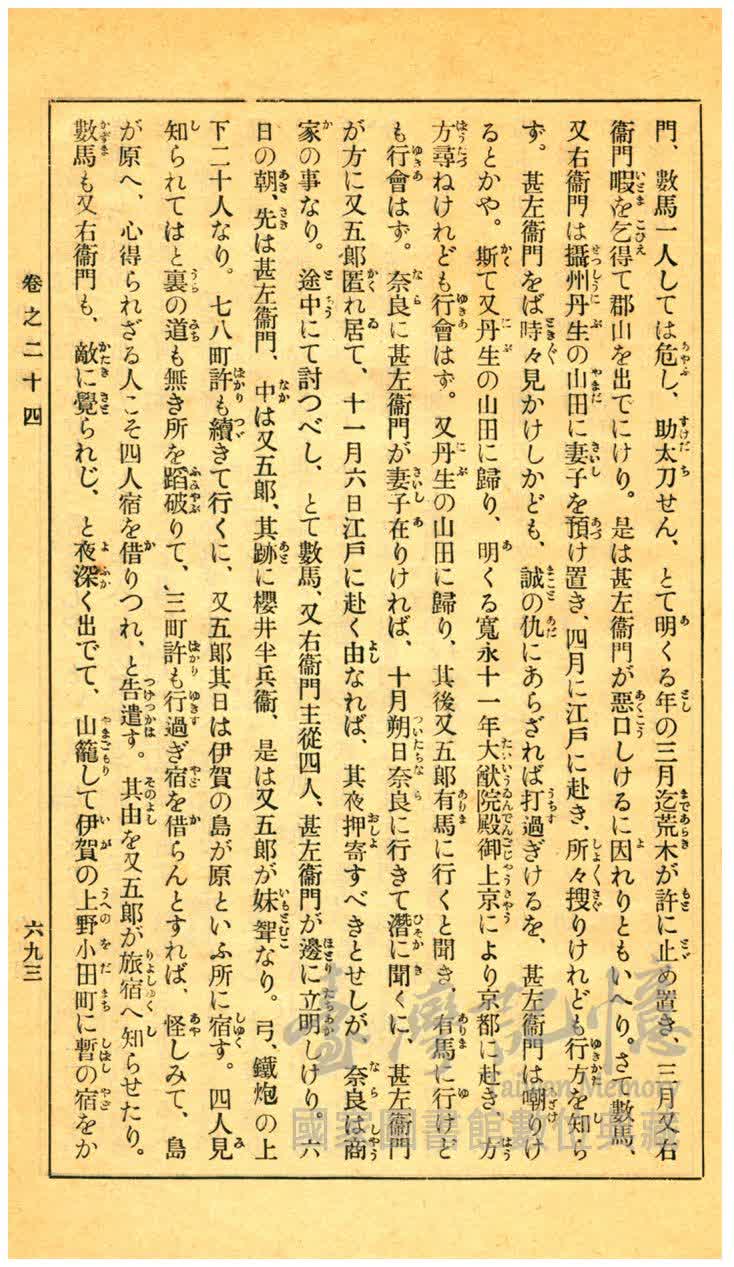 門、數馬一人しては危し、助太刀せん、とて明くる年の三月迄荒木が許に止め置き、三月又右
衞門暇を乞得て郡山を出でにけり。是は甚左衞門が惡口しけるに因れりともいへり。さて數馬、
又右衞門は攝州丹生の山田に妻子を預け置き、四月に江戸に赴き、所々搜りけれども行方を知ら
ず。甚左衞門をば時々見かけしかども、誠の仇にあらざれば打過ぎけるを、甚左衞門は嘲りけ
るとかや。斯て又丹生の山田に歸り、明くる寬永十一年大猷院殿御上京により京都に赴き、方
方尋ねけれども行會はず。又丹生の山田に歸り、其後又五郎有馬に行くと聞き、有馬に行けど
も行會はず。奈良に甚左衞門が妻子在りければ、十月朔日奈良に行きて潛に聞くに、甚左衞門
が方に又五郎匿れ居て、十一月六日江戸に赴く由なれば、其夜押寄すべきとせしが、奈良は商
家の事なり。途中にて討つべし、とて數馬、又右衞門主從四人、甚左衞門が邊に立明しけり。六
日の朝、先は甚左衞門、中は又五郎、其跡に櫻井半兵衞、是は又五郎が妹聟なり。弓、鐵炮の上
下二十人なり。七八町許も續きて行くに、又五郎其日は伊賀の島が原といふ所に宿す。四人見
知られてはと裏の道も無き所を蹈破りて、三町許も行過ぎ宿を借らんとすれば、怪しみて、島
が原へ、心得られざる人こそ四人宿を借りつれ、と告遣す。其由を又五郎が旅宿へ知らせたり。
數馬も又右衞門も、敵に覺られじ、と夜深く出でて、山籠して伊賀の上野小田町に暫の宿をか
卷之二十四
六九三
臺灣記憶
Taiwan Memory
國家圖書館數位典藏